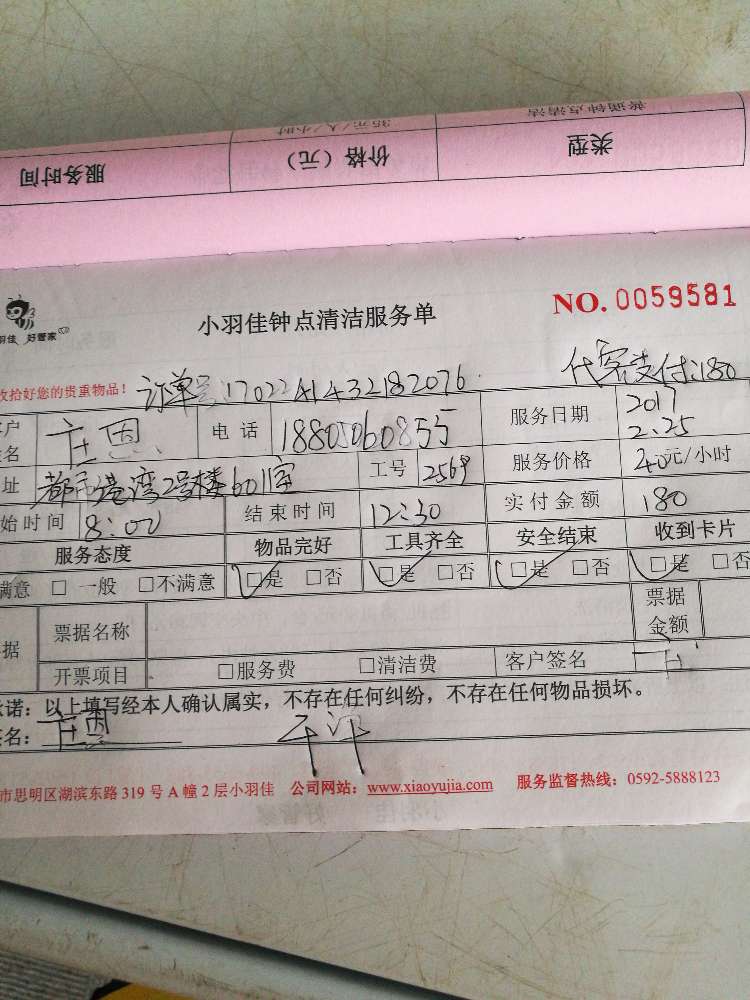 普通钟点清洁 35元/人/小时
类型 价格（元） 服务时间
羽佳 好管家
小羽佳钟点清洁服务单 NO. 0059581
收拾好您的贵重物品！ 订单号:1702241432182076 代客支付:180
客户姓名 庄恩 电话 18805060855 服务日期 2017 2.25
址 都市港湾2号楼601室 工号 2569 服务价格 40元/小时
始时间 8:00 结束时间 12:30 实付金额 180
服务态度 物品完好 工具齐全 安全结束 收到卡片
满意 □ 一般 □不满意 □是 □否 □是 □否 □是 □否 □是 □否
据 票据名称 票据金额
开票项目 □服务费 □清洁费 客户签名
承诺：以上填写经本人确认属实，不存在任何纠纷，不存在任何物品损坏。
签名： 庄恩
市思明区湖滨东路 319 号 A 幢 2 层小羽佳 公司网站：www.xiaoyujia.com 服务监督热线：0592-5888123